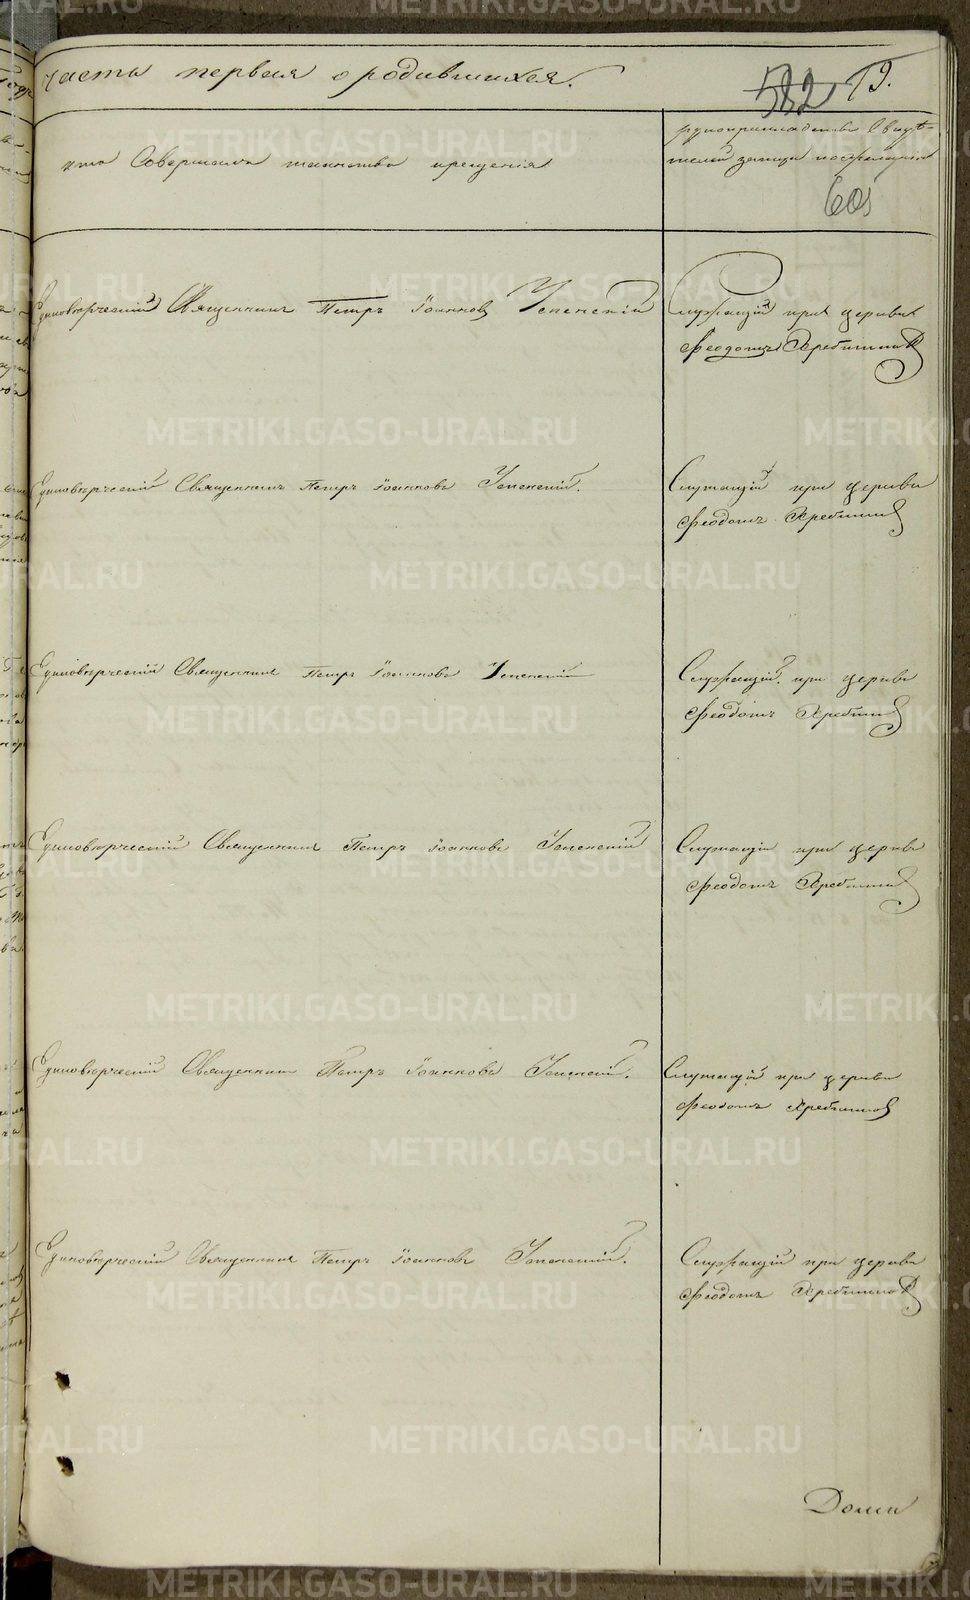 часть первая о родившихся.
582 19.
кто Совершалъ таинство крещенія
рукоприкладство Свидѣ-
телей записи по желанію
601
Единовѣрческій Священникъ Петръ Іоанновъ Успенскій
Служащій при церкви
Феодотъ Хребтиковъ
Единовѣрческій Священникъ Петръ Іоанновъ Успенскій.
Служащій при церкви
Феодотъ
Единовѣрческій Священникъ Петръ Іоанновъ Успенскій
Служащій при церкви
Феодотъ
Единовѣрческій Священникъ Петръ Іоанновъ Успенскій
Служащій при церкви
Феодотъ
Единовѣрческій Священникъ Петръ Іоанновъ Успенскій.
Служащій при церкви
Феодотъ
Единовѣрческій Священникъ Петръ Іоанновъ Успенскій.
Служащій при церкви
Феодотъ
METRIKI.GASO-URAL.RU